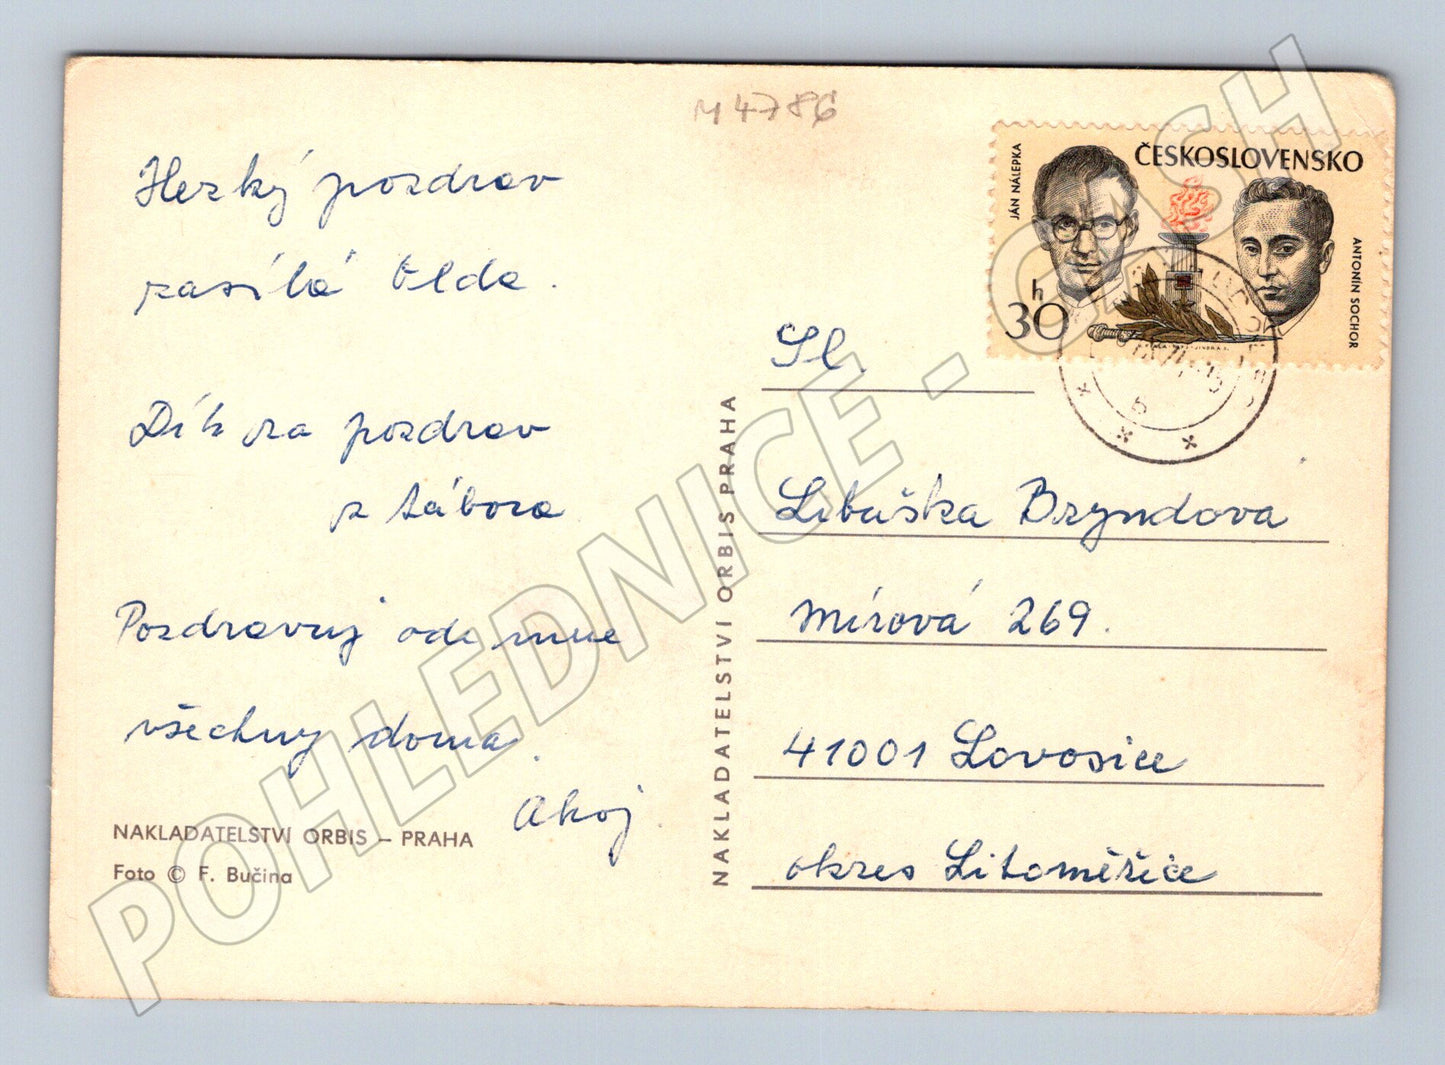 M 4786
Hezký pozdrav
zasílá Olda.
Dík za pozdrav
z tábora
Pozdravuj ode mne
všechny doma.
Ahoj.
NAKLADATELSTVÍ ORBIS – PRAHA
Foto © F. Bučina
NAKLADATELSTVÍ ORBIS PRAHA
ČESKOSLOVENSKO
JÁN NÁLEPKA
ANTONÍN SOCHOR
30 h
Sl.
Libuška Bryndova
Mírová 269.
41001 Lovosice
okres Litoměřice
POHLEDNICE - CASH